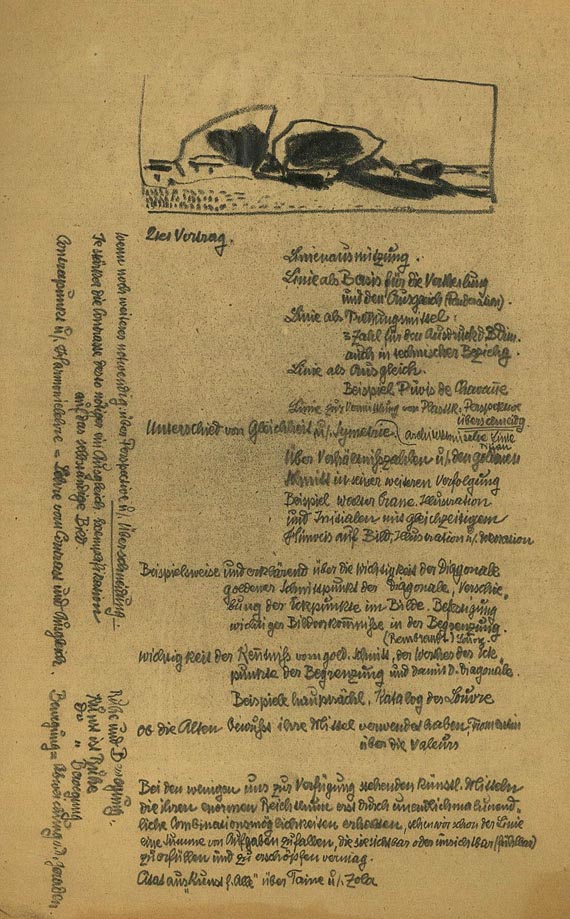 2ter Vortrag.
Linienausnützung.
Linie als Basis für die Verteilung
und den Ausgleich
Linie als Trennungsmittel
Zahl für den Ausdruck d.
auch in technischer Bezichg.
Linie als Ausgleich.
Beispiel Püvis de Chavañe
Linie zur Vermittlung von Plastik. Perspektive
Überschneidg
Unterschied von Gleichheit u/. Symetrie architektonische Linie
Über Verhältnißzahlen u/. den goldenen
Schnitt in seiner weiteren Verfolgung
Beispiel Walter Crane. Illustration
und Initialen mit gleichzeitigem
Hinweis auf Bild, Illustration u/. Dekoration
Beispielsweise und erklärend über die Wichtigkeit der Diagonale
goldener Schnittpunkt der Diagonale, Verschie-
bung der Eckpunkte im Bilde. Befestigung
wichtiger Bildvorkomniße in der Begrenzung.
(Rembrandt)
Wichtigkeit der Keñtniß vom gold. Schnitt, des Wertes der Eck-
punkte der Begrenzung und damit d. Diagonale.
Beispiele hauptsächl. Katalog des Louvre
Ob die Alten bewußt ihre Mittel verwendet haben, Fromentin
über die Valeurs
Bei den wenigen uns zur Verfügung stehenden künstl. Mitteln
die ihren enormen Reichthum erst durch unendlichmalunend-
liche Combinationsmöglichkeiten erhalten, schon der Linie
eine Summe von Aufgaben zufallen, die sie sichtbar oder unsichtbar (fühlbar)
zu erfüllen und zu erschöpfen vermag.
Citat aus "Kunst f. Alle" über Taine u/. Zola
wenn noch weiteres notwendig, über Perspektive u/. Überschneidung
Je stärker die Contraste desto nötiger ein Ausgleich, Exemplifikation
auf das selbständige Bild.
Contrapunkt u/. Harmonielehre = Lehre vom Contrast und Ausgleich.
Ruhe und Bewegung.
Kunst ist Ruhe
Do " Bewegung
Bewegung =